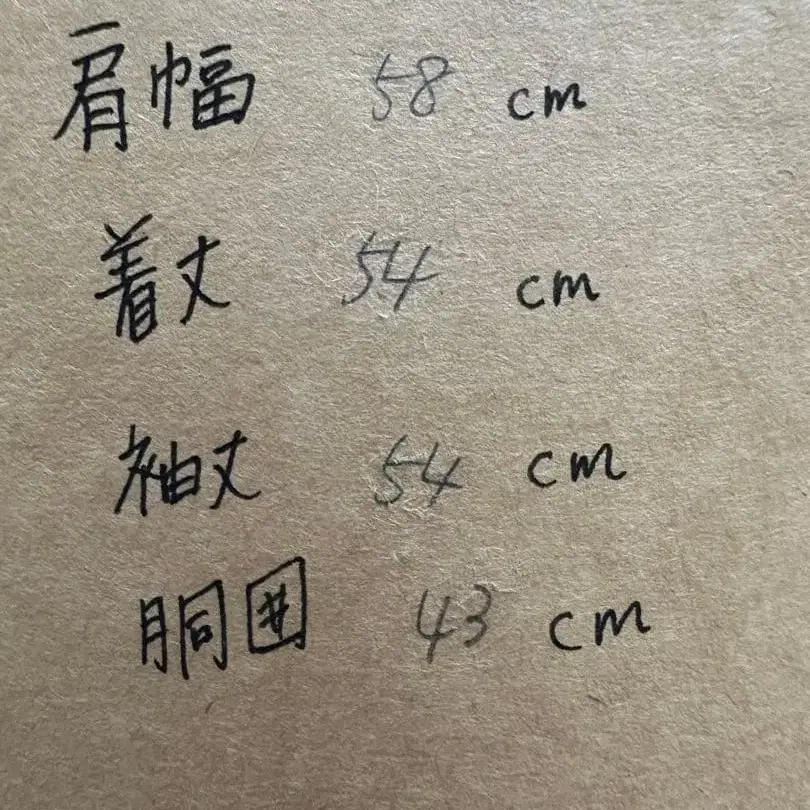 肩幅 58 cm
着丈 54 cm
袖丈 54 cm
胴囲 43 cm